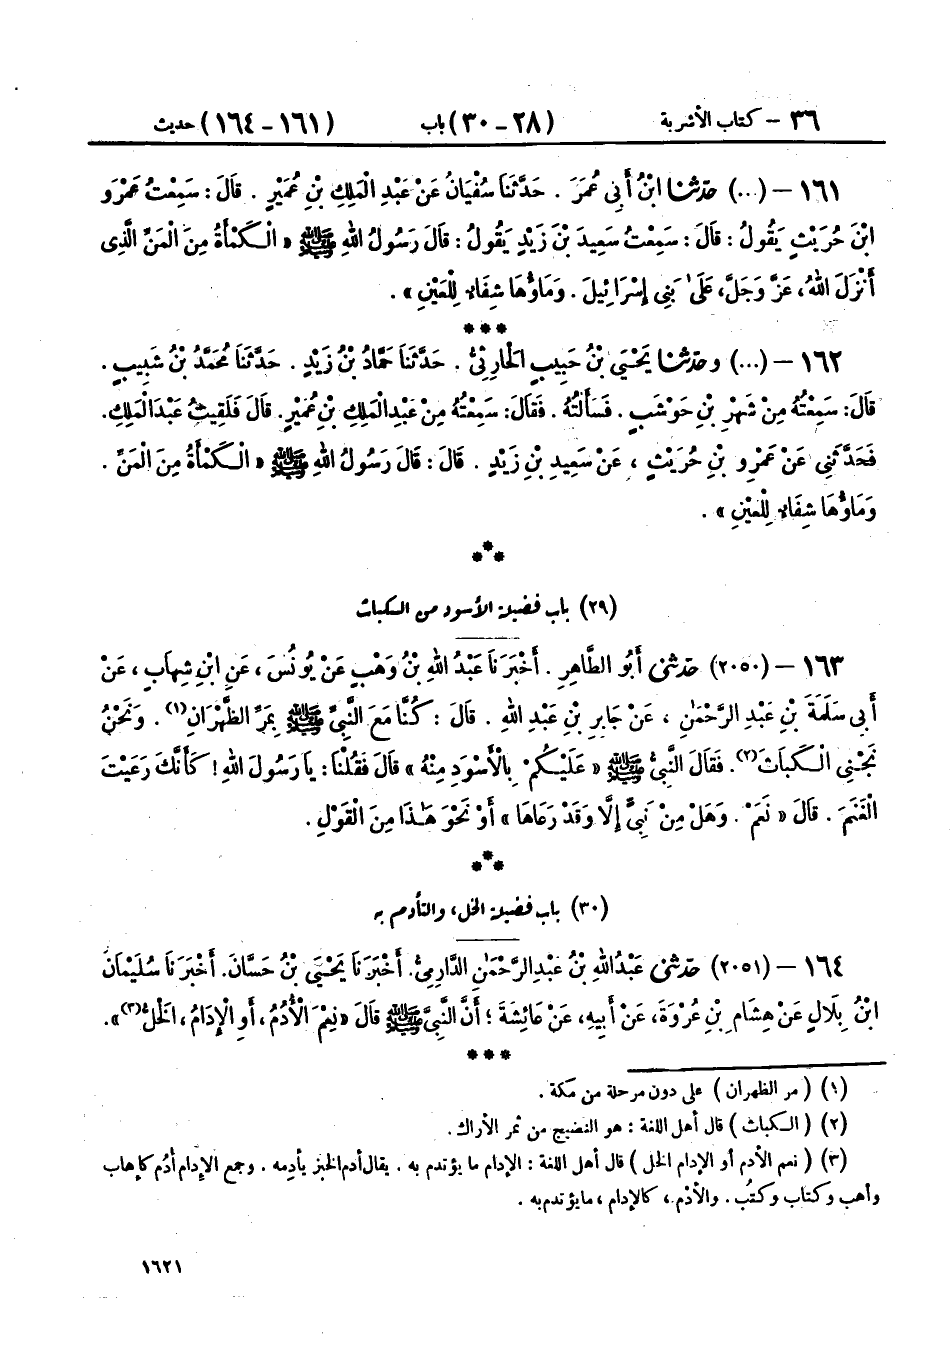 ٣٦ – كتاب الأشربة (٢٨-٣٠) باب (١٦١-١٦٤) حديث
١٦١ – (...) حَدَّثَنَا ابْنُ أَبِي عُمَرَ . حَدَّثَنَا سُفْيَانُ عَنْ عَبْدِ الْمَلِكِ بْنِ عُمَيْرٍ . قَالَ : سَمِعْتُ عَمْرَو
ابْنَ حُرَيْثٍ يَقُولُ : قَالَ : سَمِعْتُ سَعِيدَ بْنَ زَيْدٍ يَقُولُ : قَالَ رَسُولُ اللهِ ﷺ « الْكَمْأَةُ مِنَ الْمَنِّ الَّذِى
أَنْزَلَ اللهُ، عَزَّ وَجَلَّ، عَلَىٰ بَنِى إِسْرَائِيلَ . وَمَاؤُهَا شِفَاءٌ لِلْعَيْنِ » .
***
١٦٢ – (...) وحَدَّثَنَا يَحْيَىٰ بْنُ حَبِيبٍ الْحَارِثِيُّ . حَدَّثَنَا حَمَّادُ بْنُ زَيْدٍ . حَدَّثَنَا مُحَمَّدُ بْنُ شَبِيبٍ .
قَالَ: سَمِعْتُهُ مِنْ شَهْرِ بْنِ حَوْشَبٍ . فَسَأَلْتُهُ . فَقَالَ: سَمِعْتُهُ مِنْ عَبْدِ الْمَلِكِ بْنِ عُمَيْرٍ. قَالَ فَلَقِيتُ عَبْدَ الْمَلِكِ.
فَحَدَّثَنِي عَنْ عَمْرِو بْنِ حُرَيْثٍ ، عَنْ سَعِيدِ بْنِ زَيْدٍ . قَالَ : قَالَ رَسُولُ اللهِ ﷺ « الْكَمْأَةُ مِنَ الْمَنِّ .
وَمَاؤُهَا شِفَاءٌ لِلْعَيْنِ » .
***
(٢٩) باب فضيلة الأسود من الكباث
١٦٣ – (٢٠٥٠) حَدَّثَنِي أَبُو الطَّاهِرِ . أَخْبَرَنَا عَبْدُ اللهِ بْنُ وَهْبٍ عَنْ يُونُسَ ، عَنِ ابْنِ شِهَابٍ ، عَنْ
أَبِي سَلَمَةَ بْنِ عَبْدِ الرَّحْمَٰنِ ، عَنْ جَابِرِ بْنِ عَبْدِ اللهِ . قَالَ : كُنَّا مَعَ النَّبِيِّ ﷺ بِمَرِّ الظَّهْرَانِ(١) . وَنَحْنُ
نَجْنِي الْكَبَاثَ(٢). فَقَالَ النَّبِيُّ ﷺ « عَلَيْكُمْ بِالْأَسْوَدِ مِنْهُ » قَالَ فَقُلْنَا: يَا رَسُولَ اللهِ ! كَأَنَّكَ رَعَيْتَ
الْغَنَمَ . قَالَ « نَعَمْ . وَهَلْ مِنْ نَبِيٍّ إِلَّا وَقَدْ رَعَاهَا » أَوْ نَحْوَ هَٰذَا مِنَ الْقَوْلِ .
***
(٣٠) باب فضيلة الخل، والتأدم به
١٦٤ – (٢٠٥١) حَدَّثَنِي عَبْدُ اللهِ بْنُ عَبْدِ الرَّحْمَٰنِ الدَّارِمِيُّ. أَخْبَرَنَا يَحْيَىٰ بْنُ حَسَّانَ. أَخْبَرَنَا سُلَيْمَانُ
ابْنُ بِلَالٍ عَنْ هِشَامِ بْنِ عُرْوَةَ، عَنْ أَبِيهِ، عَنْ عَائِشَةَ ؛ أَنَّ النَّبِيَّ ﷺ قَالَ «نِعْمَ الْأُدُمُ ، أَوِ الْإِدَامُ ، الْخَلُّ(٣)».
***
(١) ( مر الظهران ) على دون مرحلة من مكة .
(٢) ( الكباث ) قال أهل اللغة : هو النضيج من ثمر الأراك .
(٣) ( نعم الأدم أو الإدام الخل ) قال أهل اللغة : الإدام ما يؤتدم به . يقال أدم الخبز يأدِمه . وجمع الإدام أدُم كإهاب
وأهب وكتاب وكتُب . والأدْم ، كالإدام ، ما يؤتدم به .
١٦٢١